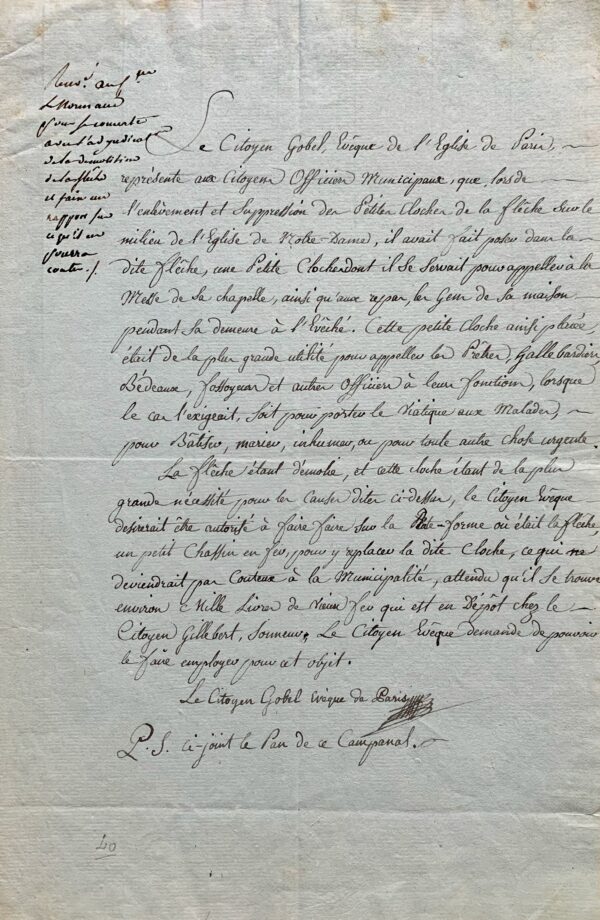 Renv.é au S.r
Normand
pour se concerter
avec l'adjudicat.
de la démolition
de la flèche
et faire un
rapport sur
ce qu'il en
pourra
couter ./.
Le Citoyen Gobel, Evêque de l'Eglise de Paris,
représente aux Citoyens Officiers Municipaux, que, lors de
l'enlèvement et suppression des Petites Cloches de la flêche sur le
milieu de l'Eglise de Notre-Dame, il avait fait poser dans la
dite flêche, une Petite Cloche dont il se servait pour appeller à la
Messe de sa chapelle, ainsi qu'aux repas, les Gens de sa maison
pendant sa demeure à l'Evêché. Cette petite Cloche ainsi placée,
était de la plus grande utilité pour appeller les Prêtres, Hallebardiers,
Bédeaux, fossoyeurs et autres Officiers à leurs fonctions, lorsque
le cas l'exigeait, soit pour porter le Viatique aux Malades,
pour Bâtiser, marier, inhumer, ou pour toute autre chose urgente.
La flêche étant démolie, et cette cloche étant de la plus
grande nécessité pour les causes dites ci-dessus, le Citoyen Evêque
desirerait être autorisé à faire faire sur la Plate-forme où était la flêche,
un petit Chassin en fer, pour y replacer la dite Cloche, ce qui ne
deviendrait pas Couteux à la Municipalité, attendu qu'il se trouve
environ Mille Livres de Vieux fer qui est en Dépôt chez le
Citoyen Gillebert, Sonneur. Le Citoyen Evêque demande de pouvoir
le faire employer pour cet objet.
Le Citoyen Gobel Evêque de Paris
P.S. ci-joint le Plan de ce Campanal.
40